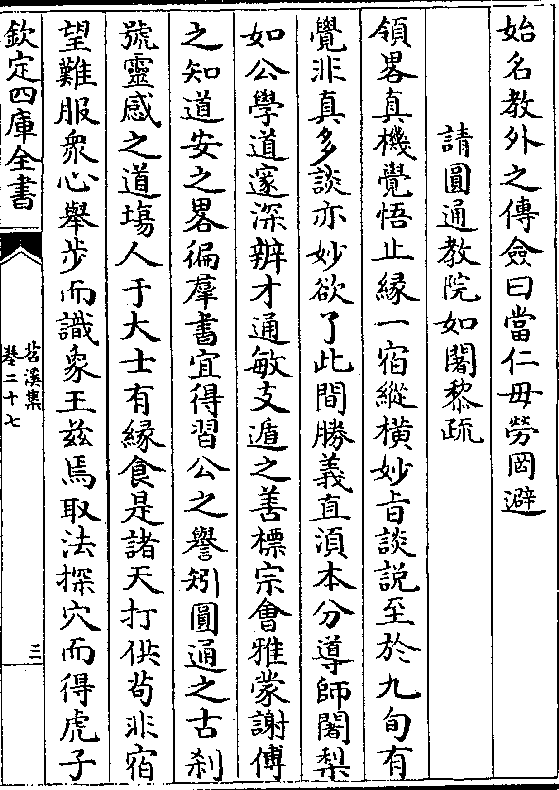 始名教外之傳僉曰當仁毋勞固避
請圓通教院如闍黎疏
領畧真機覺悟止縁一宿縱横妙旨談説至於九旬有
覺非真多談亦妙欲了此間勝義直湏本分導師闍梨
如公學道邃深辨才通敏支遁之善標宗會雅蒙謝傅
之知道安之畧徧羣書宜得習公之譽矧圓通之古刹
號靈感之道塲人于大士有縁食是諸天打供茍非宿
望難服衆心舉步而識象王兹焉取法探穴而得虎子
欽定四庫全書
苕溪集
卷二十七
三